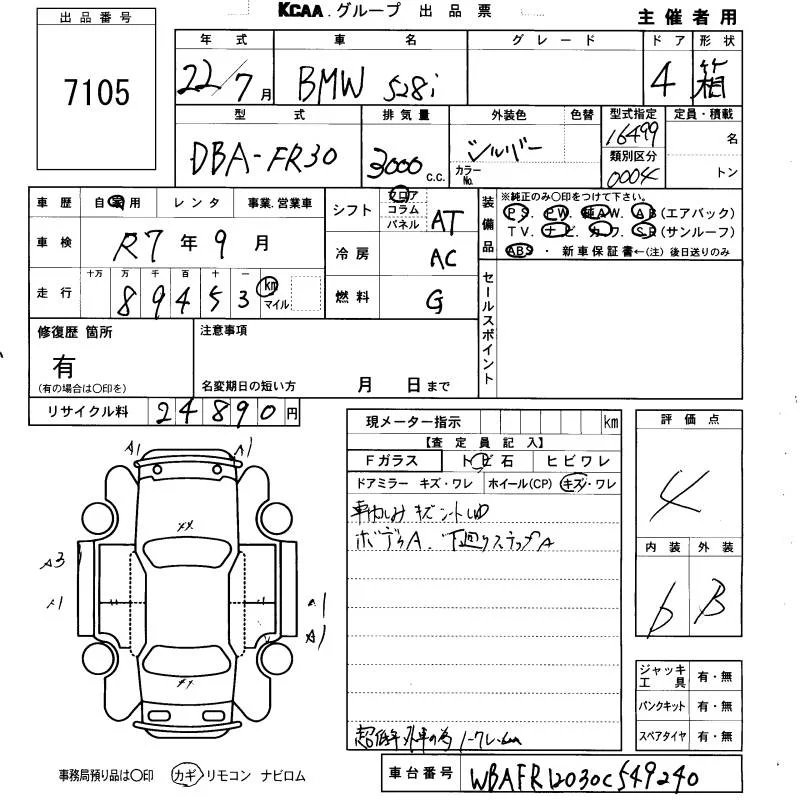 KCAA.グループ 出品票
主催者用
出品番号
7105
年式 車名 グレード ドア 形状
22/7月 BMW 528i 4 箱
型式 排気量 外装色 色替 型式指定 定員・積載
DBA-FR30 3000 c.c. シルバー カラーNo. 16499 名
類別区分
0004 トン
車歴 自家用 レンタ 事業.営業車
シフト フロア コラム パネル AT
装備品 ※純正のみ〇印をつけて下さい。
PS. PW. 純AW. AB(エアバック)
TV. ナビ. カワ. SR(サンルーフ)
ABS ・ 新車保証書←(注) 後日送りのみ
車検 R7年9月
冷房 AC
走行 十万 万 千 百 十 一
89453 km マイル
燃料 G
セールスポイント
修復歴 箇所
有
(有の場合は〇印を)
注意事項
名変期日の短い方 月 日まで
リサイクル料 24890円
現メーター指示 km
【査定員記入】
Fガラス トビ石 ヒビワレ
ドアミラー キズ・ワレ ホイール(CP) キズ・ワレ
ボディA. 下廻りステップA
超低年 外車の為 ノークレーム
評価点
4
内装 外装
b B
A1 A1
A3
A1
ジャッキ工具 有・無
パンクキット 有・無
スペアタイヤ 有・無
事務局預り品は〇印 カギ リモコン ナビロム
車台番号 WBAFR12030C549240